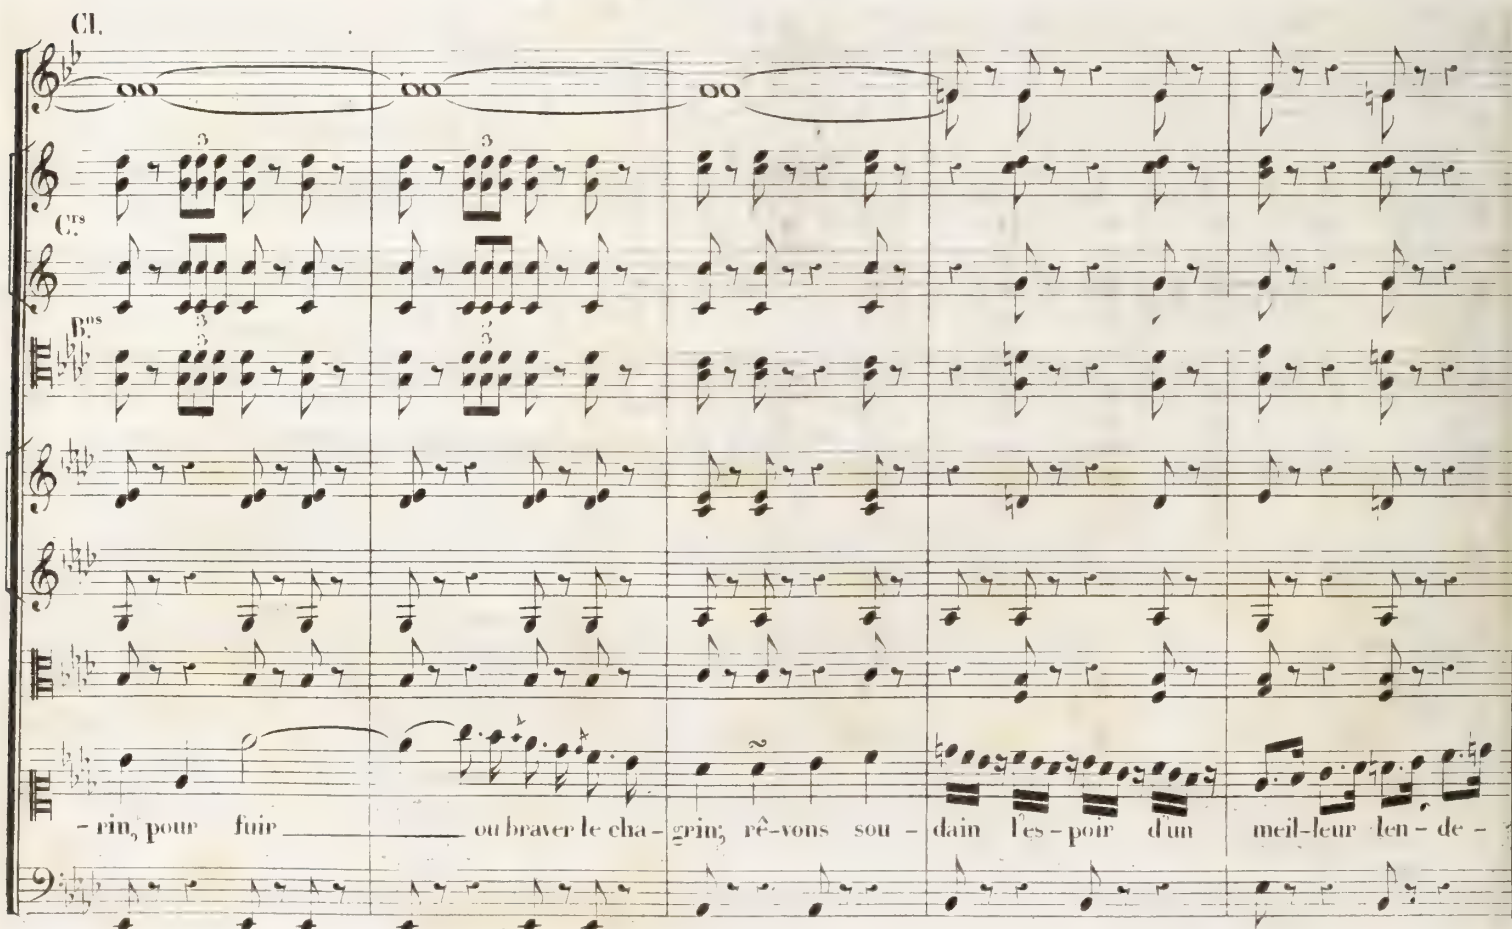 Cl.
3 3
C.rs
3 3
B.ns
3 3
- rin, pour fuir ou braver le cha - grin; rê - vons sou - dain l'es - poir d'un meil - leur len - de -